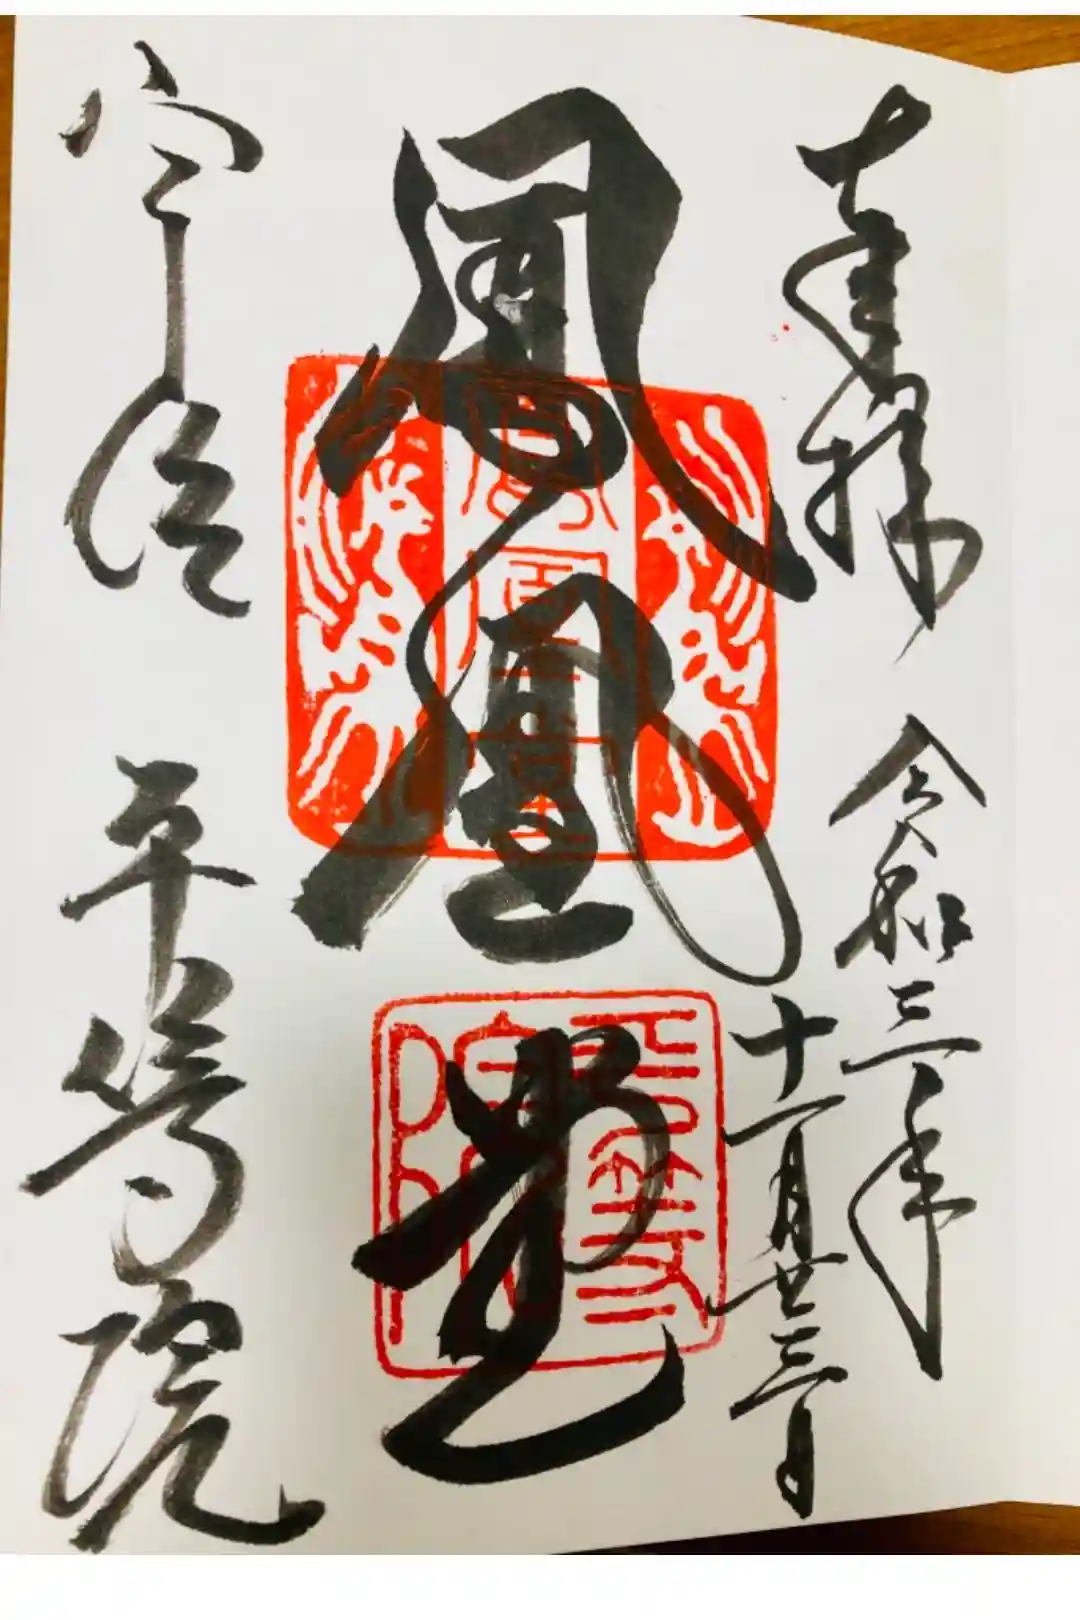 奉拝
令和三年
十一月廿三日
鳳凰堂
鳳凰堂
平等院
宇治
平等院